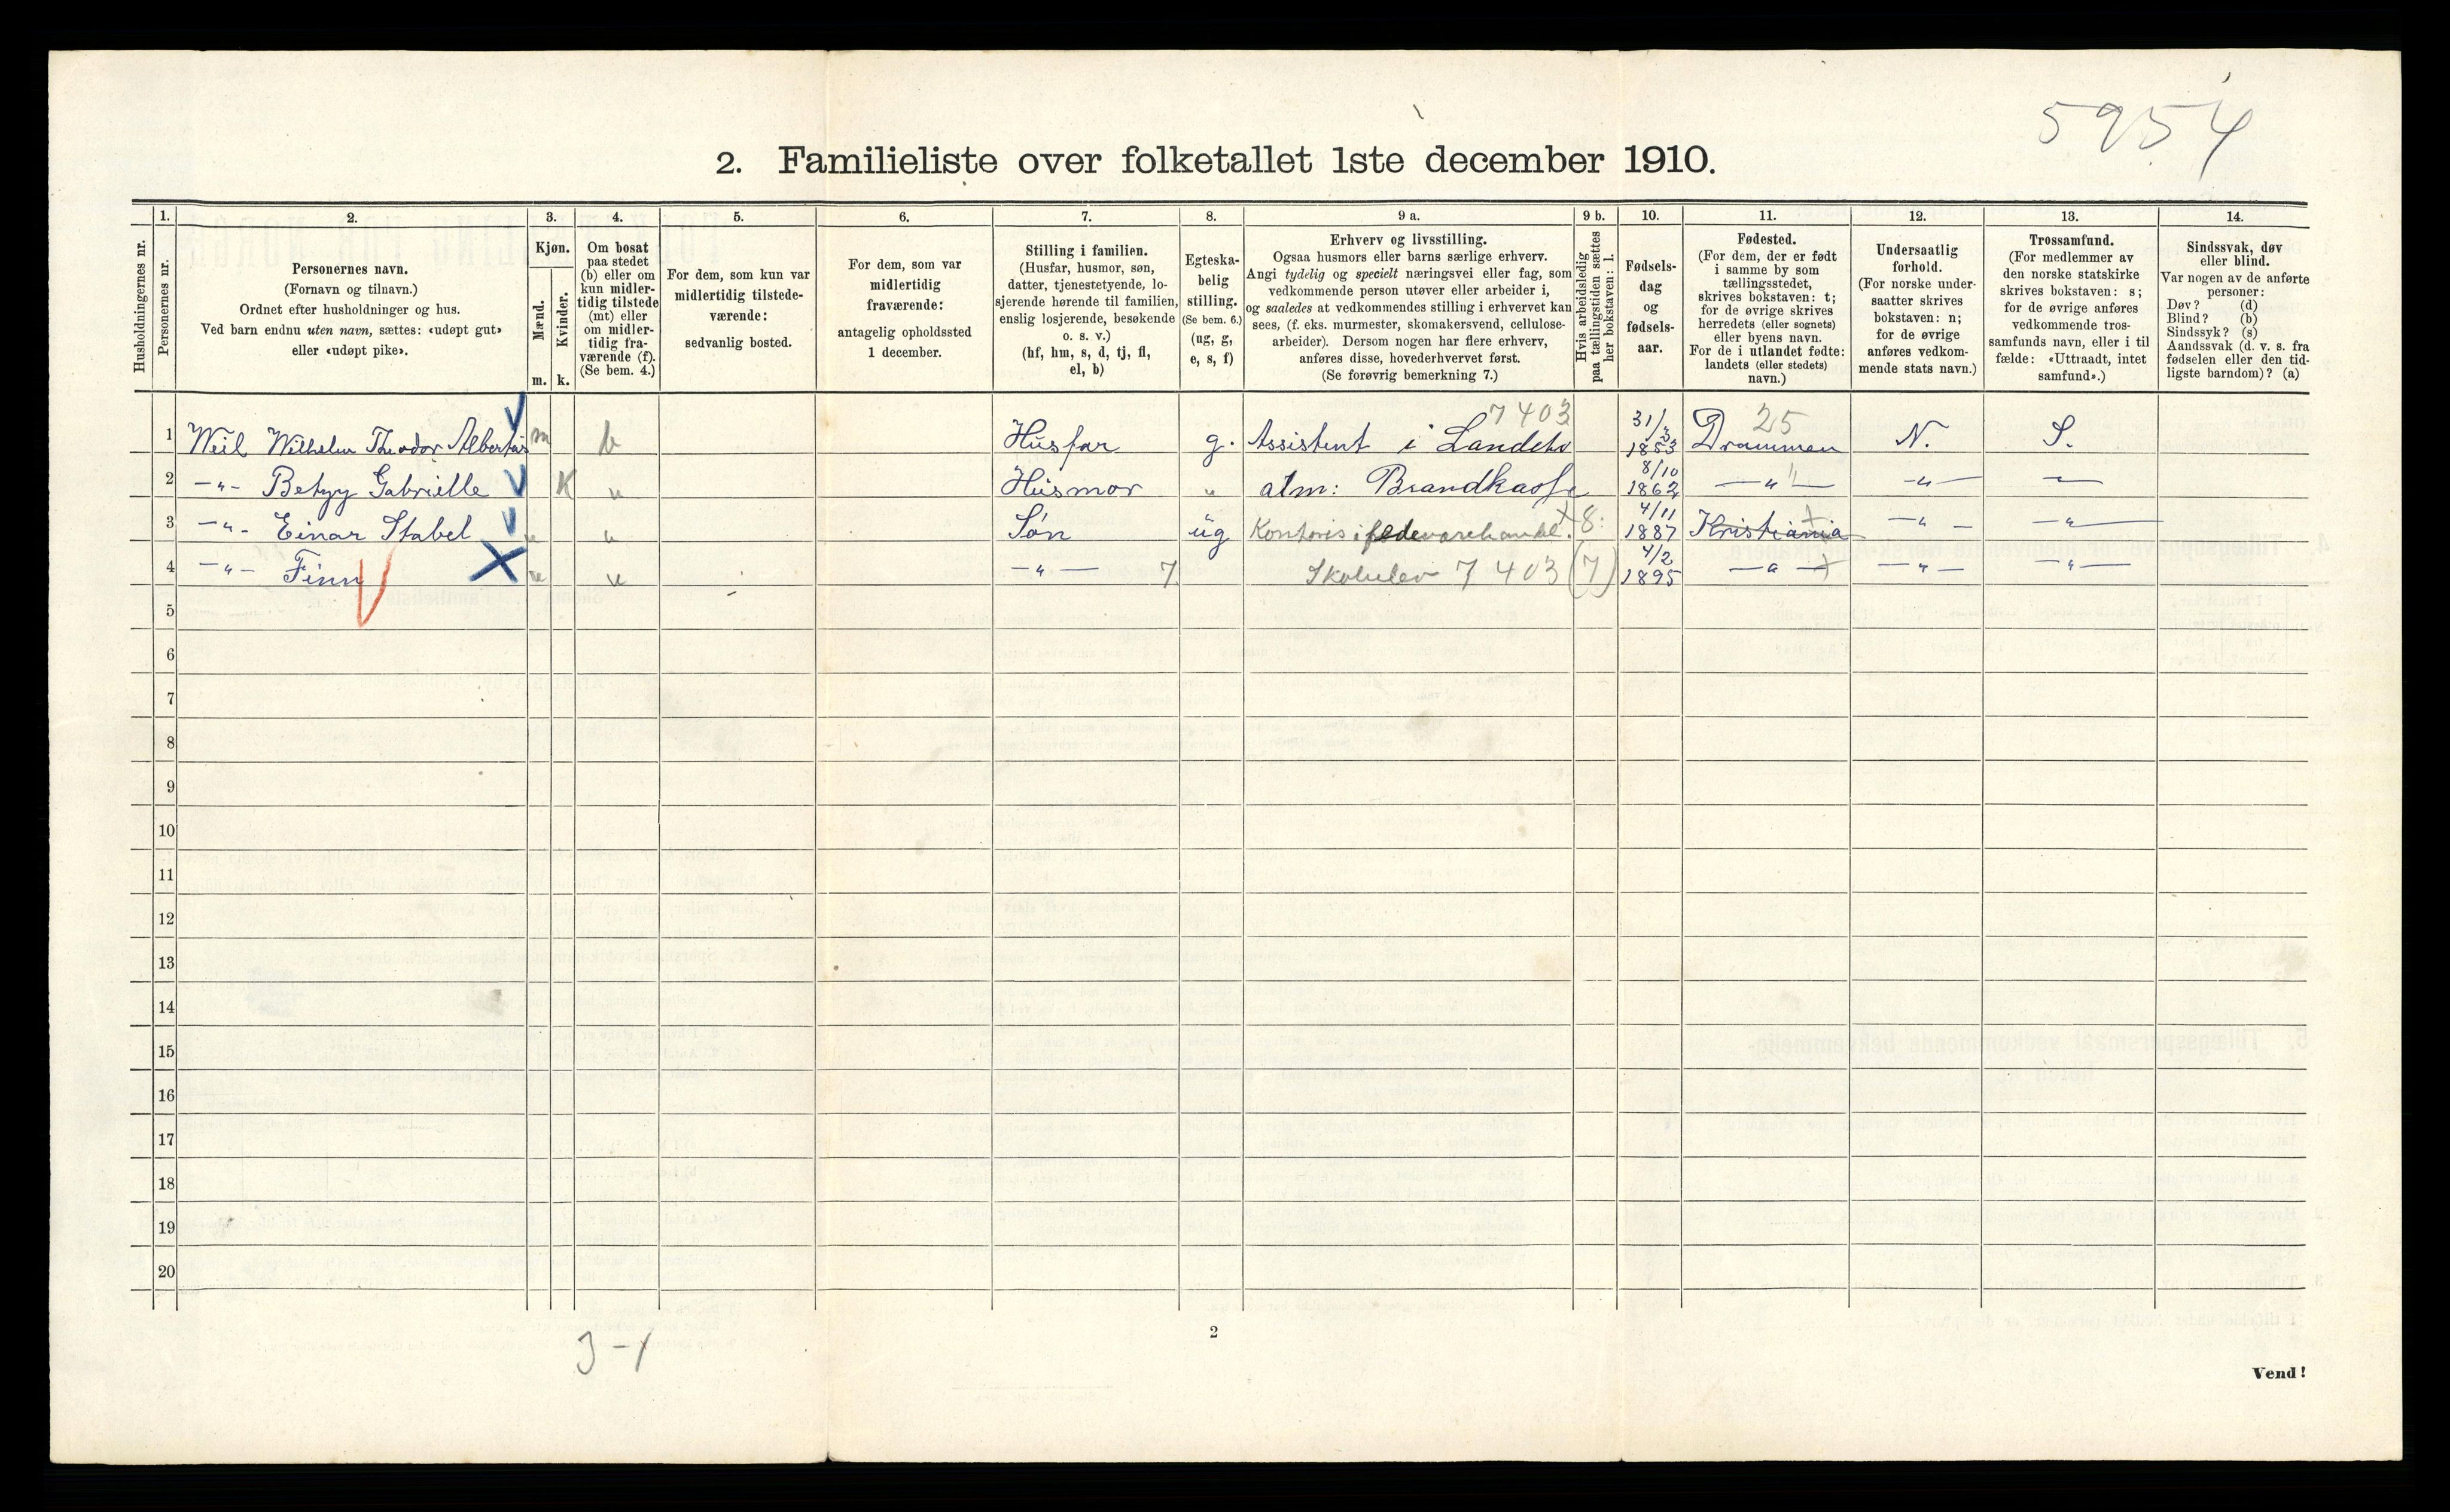 5954
2. Familieliste over folketallet 1ste december 1910.
Husholdningernes nr.
1. Personernes nr.
2. Personernes navn.
(Fornavn og tilnavn.)
Ordnet efter husholdninger og hus.
Ved barn endnu uten navn, sættes: «udøpt gut»
eller «udøpt pike».
3. Kjøn.
Mænd. m.
Kvinder. k.
4. Om bosat
paa stedet
(b) eller om
kun midler-
tidig tilstede
(mt) eller
om midler-
tidig fra-
værende (f).
(Se bem. 4.)
5. For dem, som kun var
midlertidig tilstede-
værende:
sedvanlig bosted.
6. For dem, som var
midlertidig
fraværende:
antagelig opholdssted
1 december.
7. Stilling i familien.
(Husfar, husmor, søn,
datter, tjenestetyende, lo-
sjerende hørende til familien,
enslig losjerende, besøkende
o. s. v.)
(hf, hm, s, d, tj, fl,
el, b)
8. Egteska-
belig
stilling.
(Se bem. 6.)
(ug, g,
e, s, f)
9 a. Erhverv og livsstilling.
Ogsaa husmors eller barns særlige erhverv.
Angi tydelig og specielt næringsvei eller fag, som
vedkommende person utøver eller arbeider i,
og saaledes at vedkommendes stilling i erhvervet kan
sees, (f. eks. murmester, skomakersvend, cellulose-
arbeider). Dersom nogen har flere erhverv,
anføres disse, hovederhvervet først.
(Se forøvrig bemerkning 7.)
9 b. Hvis arbeidsledig
paa tællingstiden sættes
her bokstaven: l.
10. Fødsels-
dag
og
fødsels-
aar.
11. Fødested.
(For dem, der er født
i samme by som
tællingsstedet,
skrives bokstaven: t;
for de øvrige skrives
herredets (eller sognets)
eller byens navn.
For de i utlandet fødte:
landets (eller stedets)
navn.)
12. Undersaatlig
forhold.
(For norske under-
saatter skrives
bokstaven: n;
for de øvrige
anføres vedkom-
mende stats navn.)
13. Trossamfund.
(For medlemmer av
den norske statskirke
skrives bokstaven: s;
for de øvrige anføres
vedkommende tros-
samfunds navn, eller i til
fælde: «Uttraadt, intet
samfund».)
14. Sindssvak, døv
eller blind.
Var nogen av de anførte
personer:
Døv? (d)
Blind? (b)
Sindssyk? (s)
Aandssvak (d. v. s. fra
fødselen eller den tid-
ligste barndom)? (a)
7403 25
1 Weil Wilhelm Theodor Albertus m b Husfar g. Assistent i Landets 31/3 1853 Drammen N. S.
2 -"- Betzy Gabrielle K " Husmor " alm: Brandkasse 8/10 1862 -"- -"- -
3 -"- Einar Stabel " " Søn ug Kontoris i fedevarehandel. +8: 4/11 1887 Kristiania t -"- -"-
4 -"- Finn " " -"- 7 Skoleelev 7403 (7) 4/2 1895 -"- t -"- -"-
5
6
7
8
9
10
11
12
13
14
15
16
17
18
19
20
3-1
2
Vend!